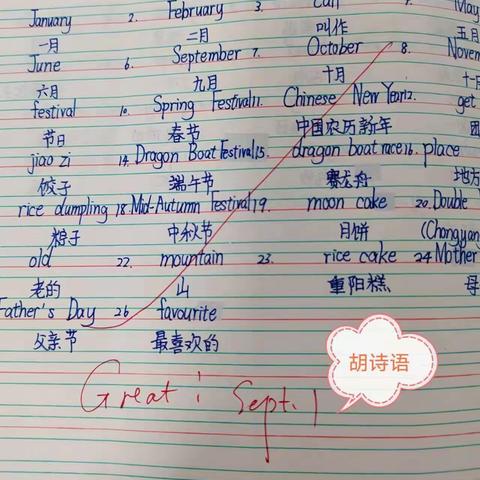 January 2. February 3. Call 7. May
一月 二月 叫作 五月
June 6. September 7. October 8. Novem
六月 九月 十月 十一
festival 10. Spring Festival 11. Chinese New Year 12. get
节日 春节 中国农历新年 团
jiao zi 14. Dragon Boat Festival 15. dragon boat race 16. place
饺子 端午节 赛龙舟 地方
rice dumpling 18. Mid-Autumn Festival 19. moon cake 20. Double
粽子 中秋节 月饼 (Chongyan
old 22. mountain 23. rice cake 24 Mother
老的 山 重阳糕 母
Father's Day 26 favourite
父亲节 最喜欢的
胡诗语
Great! Sept. 1